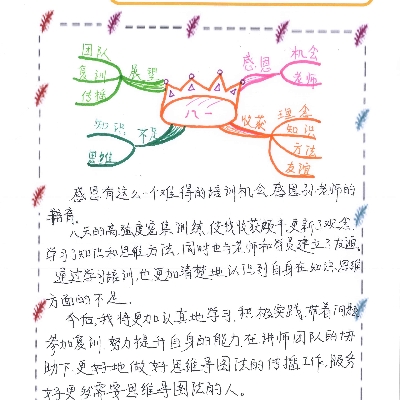 团队
复训
传播
展望
感恩
机会
老师
八一
知识
思维
不足
收获
理念
知识
方法
友谊
感恩有这么一个难得的培训机会,感恩孙老师的
八天的高强度密集训练,使我收获颇丰,更新了观念,
学习了知识和思维方法,同时也与老师和学员建立了友谊。
通过学习培训,也更加清楚地认识到自身在知识、思维
方面的不足。
今后,我将更加认真地学习,积极实践,带着问题
参加复训,努力提升自身的能力,在讲师团队的协
助下更好地做好思维导图法的传播工作,服务
好更多需要思维导图法的人。